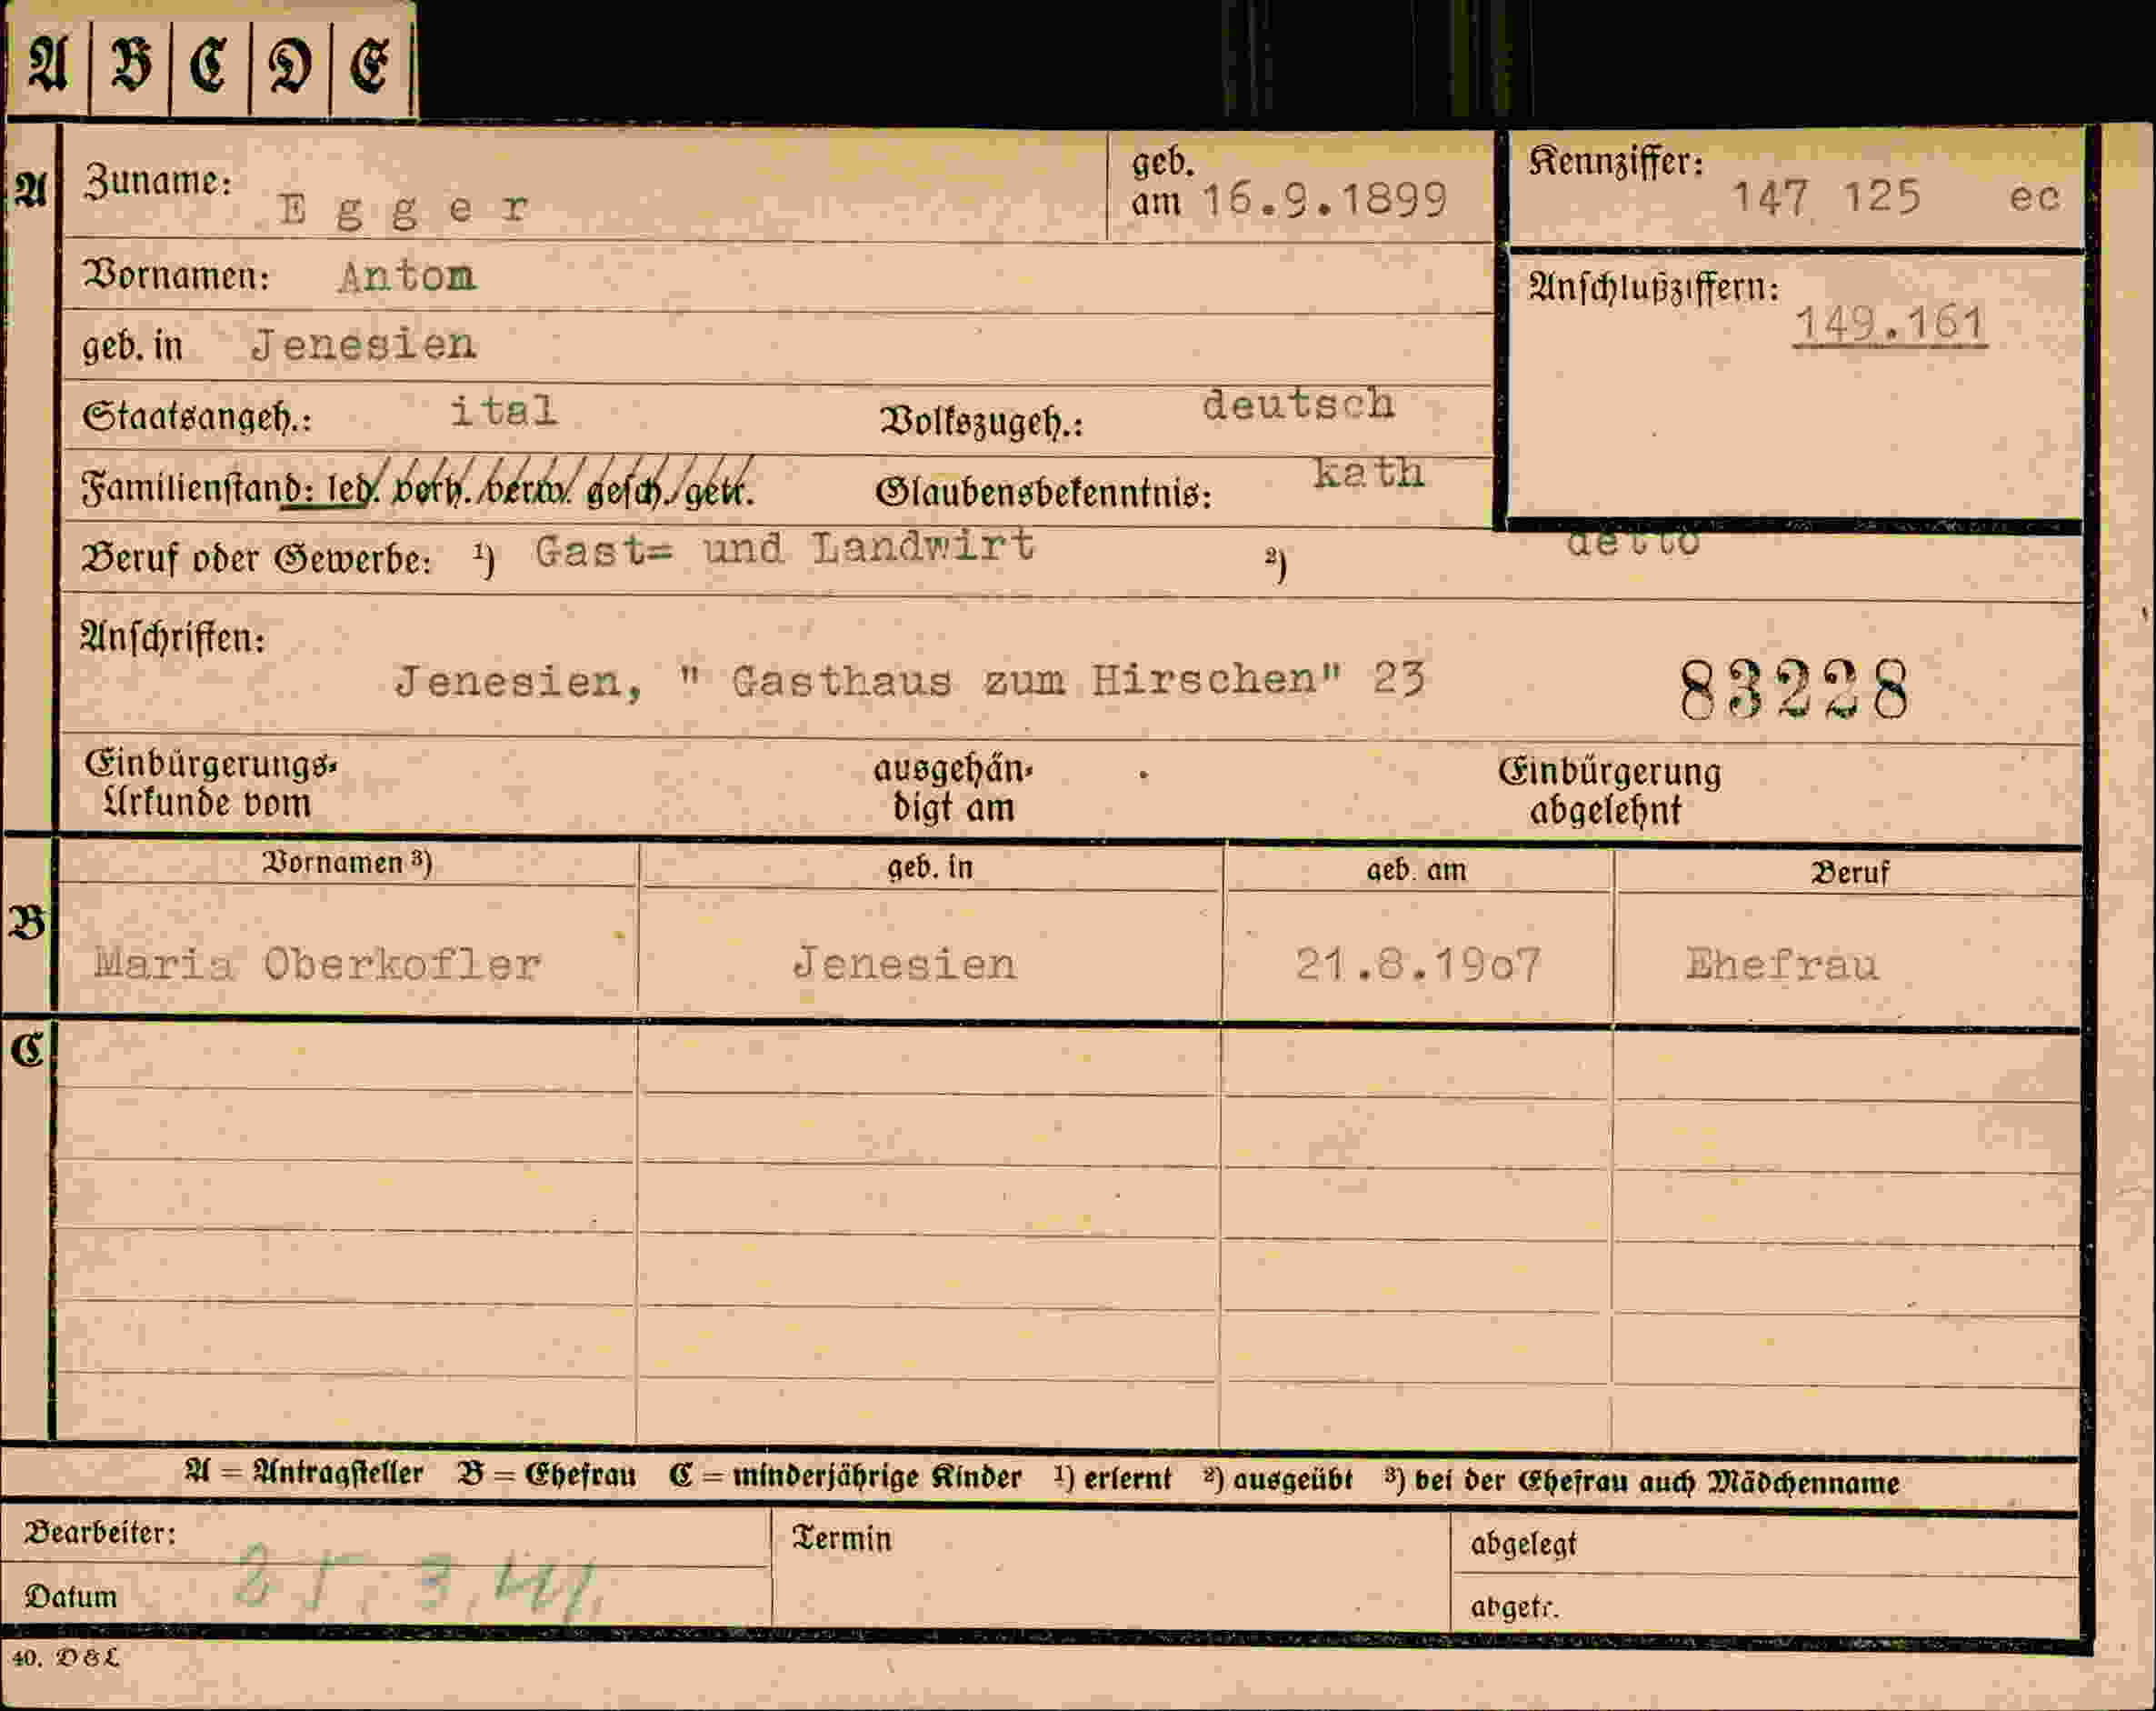 A B C D E
A Zuname: Egger geb. am 16.9.1899 Kennziffer: 147 125 ec
Vornamen: Anton Anschlußziffern: 149.161
geb. in Jenesien
Staatsangeh.: ital Volkszugeh.: deutsch
Familienstand: led. verh. verw. gesch. getr. Glaubensbekenntnis: kath
Beruf oder Gewerbe: ¹) Gast= und Landwirt ²) detto
Anschriften:
Jenesien, " Gasthaus zum Hirschen" 23 83228
Einbürgerungs- ausgehän- Einbürgerung
Urkunde vom digt am abgelehnt
Vornamen ³) geb. in geb. am Beruf
B Maria Oberkofler Jenesien 21.8.19o7 Ehefrau
C
A = Antragsteller B = Ehefrau C = minderjährige Kinder ¹) erlernt ²) ausgeübt ³) bei der Ehefrau auch Mädchenname
Bearbeiter: Termin abgelegt
Datum abgetr.
40. D & L